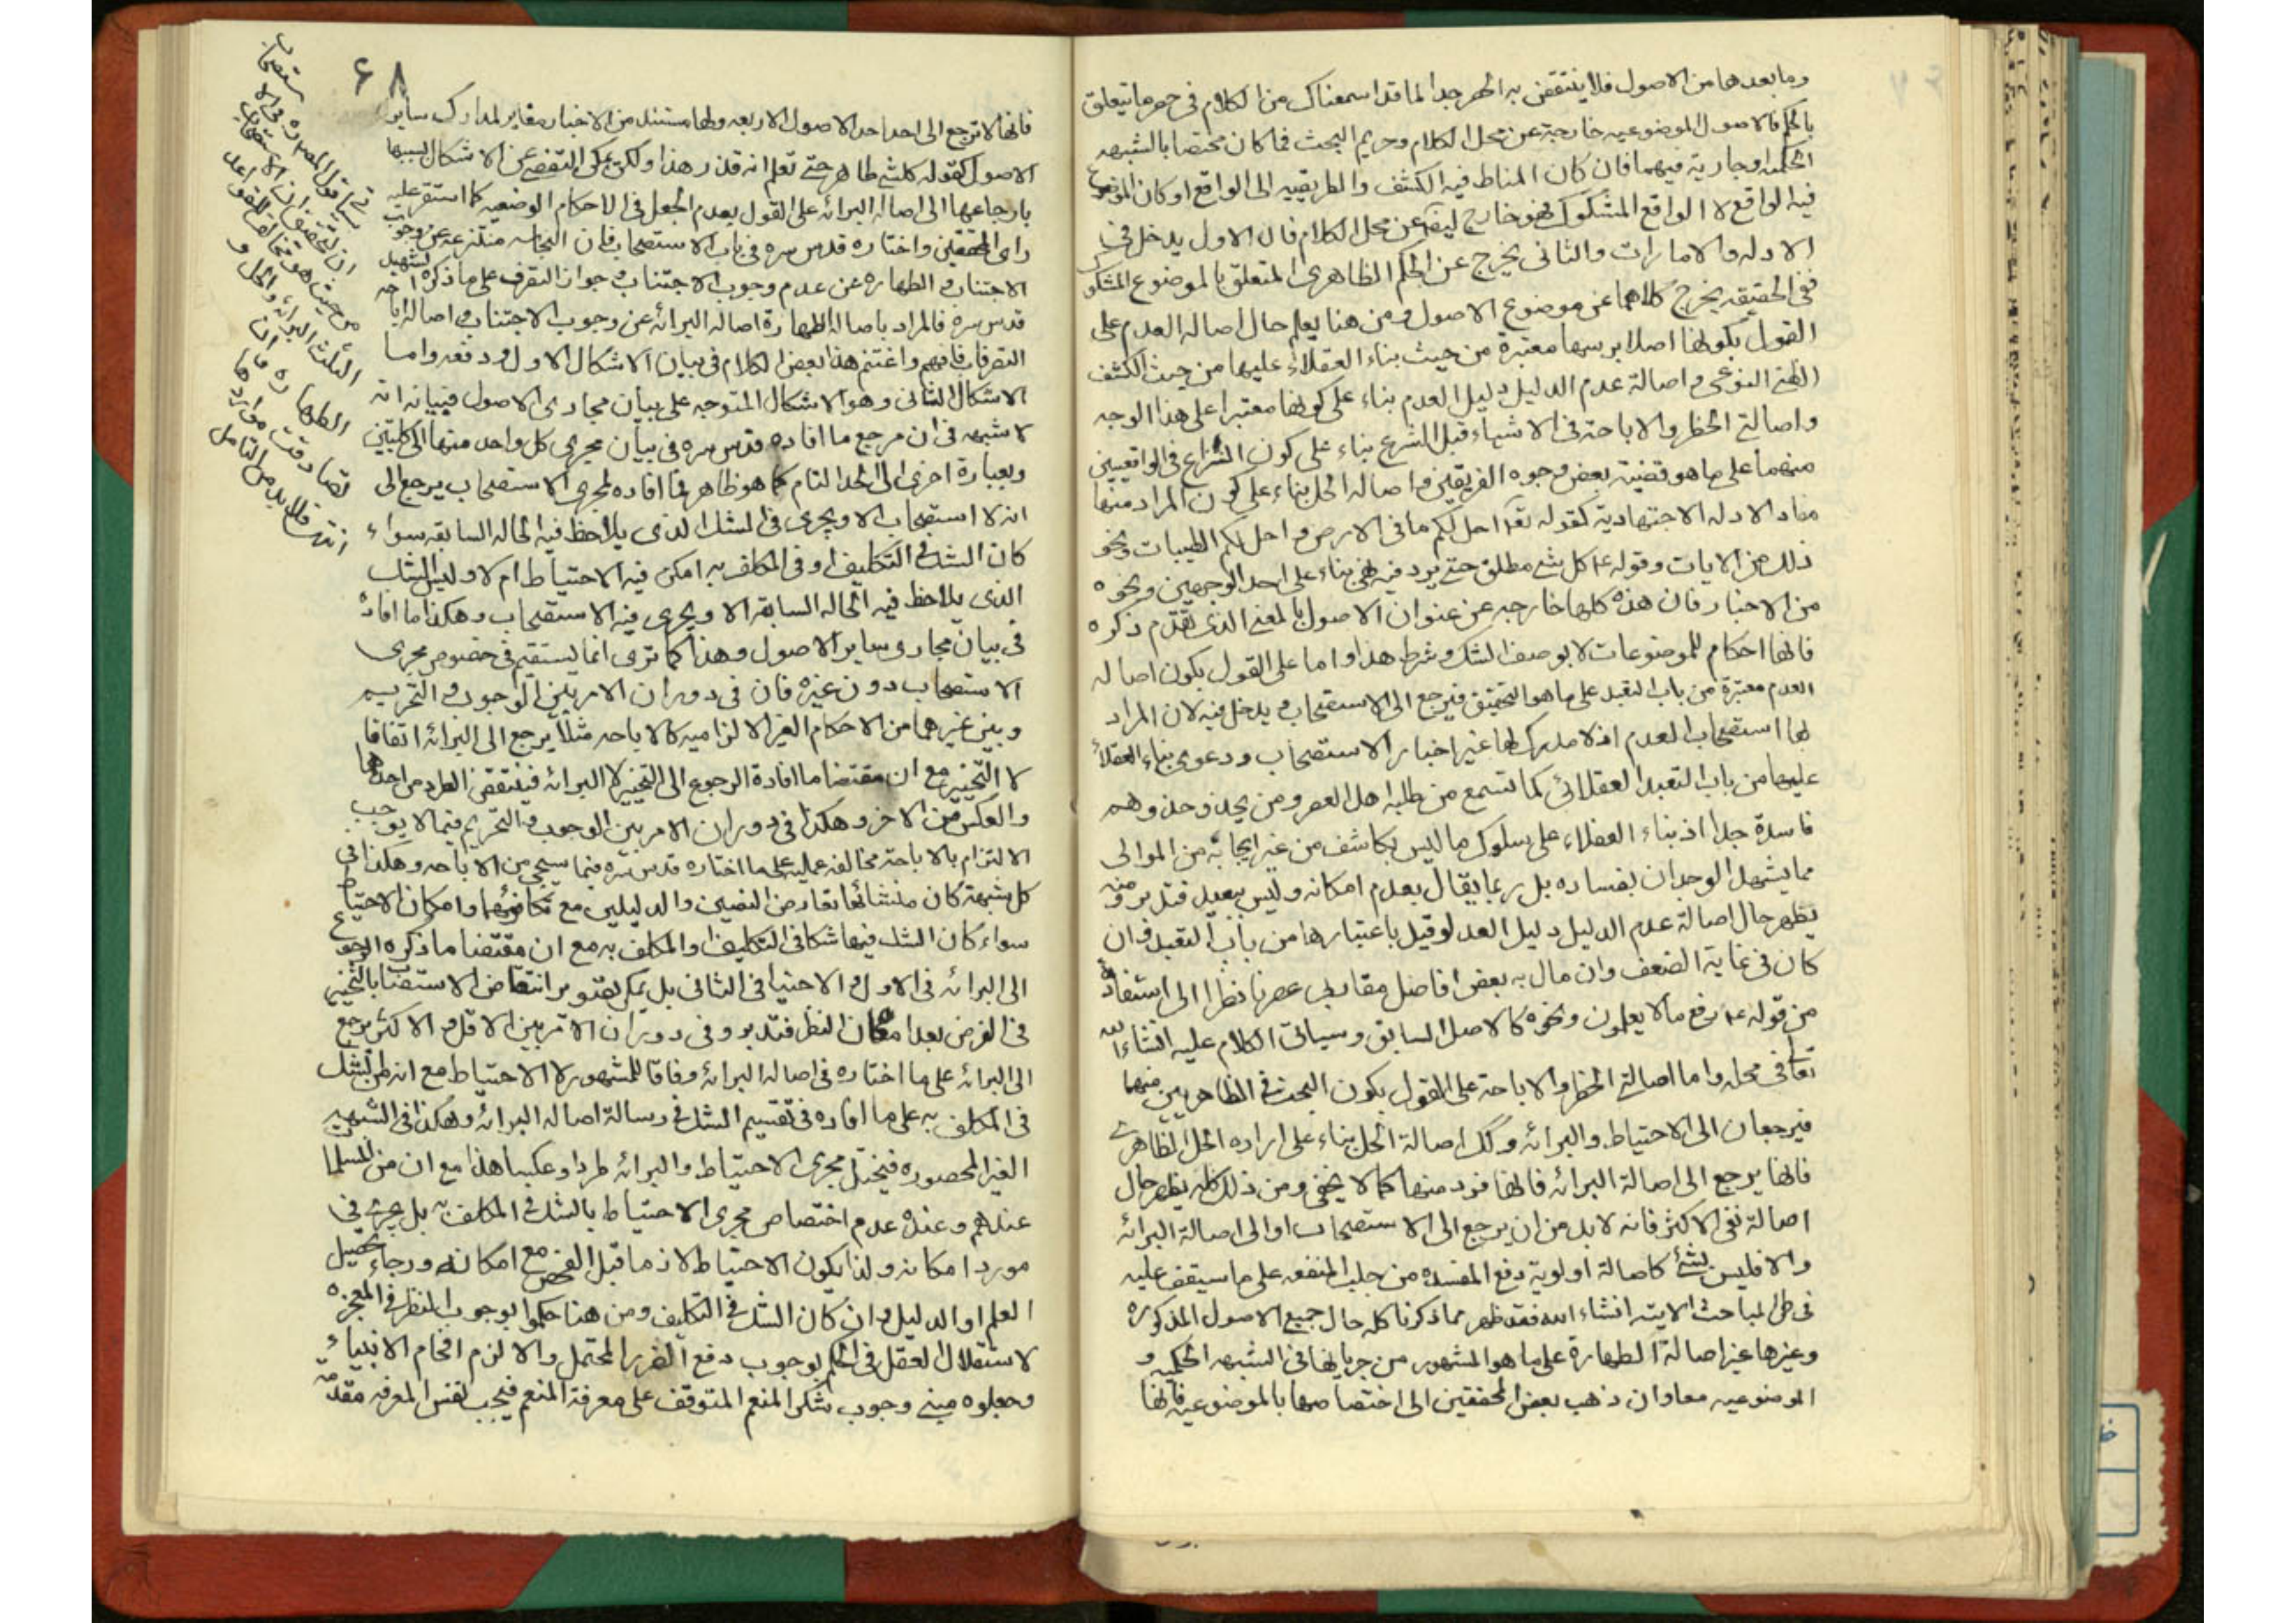 وما بعدها من الاصول فلا ينتقض به الحصر جدا لما قد اسمعناك من الكلام فى حصر ما يتعلق
بالحكم فالاصول الموضوعيه خارجة عن محل الكلام وحريم البحث فما كان مختصا بالشبهه
الحكميه او جارية فيهما فان كان المناط فيه الكشف والطريقيه الى الواقع او كان الموضوع
فيه الواقع لا الواقع المشكوك فهو خارج ايضا عن محل الكلام فان الاول يدخل فى
الادله والامارات والثانى يخرج عن الحكم الظاهرى المتعلق بالموضوع المشكوك
ففى الحقيقه يخرج كلاهما عن موضوع الاصول ومن هنا يعلم حال اصاله العدم على
القول بكونها اصلا برسها معتبرة من حيث بناء العقلاء عليها من حيث الكشف
الظنى النوعى واصالة عدم الدليل دليل العدم بناء على كونها معتبرا على هذا الوجه
واصالتى الحظر والاباحة فى الاشياء قبل الشرع بناء على كون النزاع فى الواقعيين
منهما على ما هو قضية بعض وجوه الفريقين واصاله الحل بناء على كون المراد منها
مفاد الادله الاجتهادية كقوله تعا احل لكم ما فى الارض واحل لكم الطيبات ونحو
ذلك من الايات وقوله ع كل شئ مطلق حتى يرد فيه نهى بناء على احد الوجهين ونحوه
من الاخبار فان هذه كلها خارجه عن عنوان الاصول بالمعنى الذى تقدم ذكره
فانها احكام للموضوعات لا بوصف الشك وشرط هذا واما على القول بكون اصاله
العدم معتبرة من باب التعبد على ما هو التحقيق فيرجع الى الاستصحاب ويدخل فيه لان المراد
لها استصحاب العدم اذ لا مدرك لها غير اخبار الاستصحاب ودعوى بناء العقلاء
عليها من باب التعبد العقلائى كما تسمع من طلبه اهل العصر ومن يحذو حذوهم
فاسدة جدا اذ بناء العقلاء على سلوك ما ليس بكاشف من غير ايجابه من الموالى
مما يشهد الوجدان بفساده بل ربما يقال بعدم امكانه وليس ببعيد فتدبر ومنه
يظهر حال اصالة عدم الدليل دليل العدم لو قيل باعتبارها من باب التعبد فان
كان فى غاية الضعف وان مال به بعض افاضل مقاربى عصرنا نظرا الى استفادته
من قوله ع رفع ما لا يعلمون ونحوه كالاصل السابق وسياتى الكلام عليه انشاء الله
تعالى فى محله واما اصالتى الحظر والاباحة على القول بكون البحث فى الظاهريين منهما
فيرجعان الى الاحتياط والبرائه وكذا اصالة الحل بناء على اراده الحل الظاهرى
فانها يرجع الى اصالة البرائه فانها فرد منها كما لا يخفى ومن ذلك كله يظهر حال
اصالة نفى الاكثر فانه لا بد من ان يرجع الى الاستصحاب او الى اصالة البرائه
والا فليس بشئ كاصالة اولوية دفع المفسده من جلب المنفعه على ما سيقف عليه
فى طى المباحث الاتيه انشاء الله فقد ظهر مما ذكرنا كله حال جميع الاصول المذكوره
وغيرها غير اصالة الطهارة على ما هو المشهور من جريانها فى الشبهه الحكميه و
الموضوعيه معا وان ذهب بعض المحققين الى اختصاصها بالموضوعيه فانها
۶۸
فانها لا ترجع الى احد احد الاصول الاربعه ولها مستند من الاخبار مغاير لمدارك ساير
الاصول كقوله كل شئ طاهر حتى تعلم انه قذر هذا ولكن يمكن التفصى عن الاشكال بسببها
بارجاعها الى اصاله البرائه على القول بعدم الجعل فى الاحكام الوضعيه كما استقر عليه
راى المحققين واختاره قدس سره فى باب الاستصحاب فان النجاسه منتزعه عن وجوب
الاجتناب والطهاره عن عدم وجوب الاجتناب وجواز التصرف على ما ذكره
قدس سره فالمراد باصالة الطهارة اصاله البرائه عن وجوب الاجتناب واصاله اباحه
التصرفات فافهم واغتنم هذا بعض الكلام فى بيان الاشكال الاول ودفعه واما
الاشكال الثانى وهو الاشكال المتوجه على بيان مجارى الاصول فبيانه انه
لا شبهه فى ان مرجع ما افاده قدس سره فى بيان مجرى كل واحد منها الى كليتين
وبعبارة اخرى الى الحد التام كما هو ظاهر فما افاده لمجرى الاستصحاب يرجع الى
انه لا استصحاب الا ويجرى فى الشك الذى يلاحظ فيه الحاله السابقه سواء
كان الشك فى التكليف او فى المكلف به امكن فيه الاحتياط ام لا وليس الشك
الذى يلاحظ فيه الحاله السابقه الا ويجرى فيه الاستصحاب وهكذا ما افاده
فى بيان مجارى ساير الاصول وهذا كما ترى انما يستقيم فى خصوص مجرى
الاستصحاب دون غيره فان فى دوران الامر بين الوجوب والتحريم
وبين غيرهما من الاحكام الغير الالزاميه كالاباحه مثلا يرجع الى البرائه اتفاقا
لا التخيير مع ان مقتضا ما افادة الرجوع الى التخيير لا البرائه فينتقض الطرد من احدهما
والعكس من الاخر وهكذا فى دوران الامر بين الوجوب والتحريم فيما لا يوجب
الالتزام بالاباحة مخالفه عمليه على ما اختاره قدس سره فيما سيجئ من الاباحه وهكذا فى
كل شبهة كان منشائها تعارض النصين والدليلين مع تكافؤهما وامكان الاحتياط
سواء كان الشك فيها شكا فى التكليف او المكلف به مع ان مقتضا ما ذكره الرجوع
الى البرائه فى الاول والاحتياط فى الثانى بل يمكن تصوير انتقاض الاستصحاب بالتخيير
فى الفرض بعد امعان النظر فتدبر وفى دوران الامر بين الاقل والاكثر يرجع
الى البرائه على ما اختاره فى اصاله البرائه وفاقا للمشهور لا الاحتياط مع انه من الشك
فى المكلف به على ما افاده فى تقسيم الشك فى رسالة اصاله البرائه وهكذا فى الشبهه
الغير المحصوره فيختل مجرى الاحتياط والبرائه طردا وعكسا هذا مع ان من المسلم
عندهم وعنده عدم اختصاص مجرى الاحتياط بالشك فى المكلف به بل يجرى فى
مورد امكانه ولذا يكون الاحتياط لازما قبل الفحص مع امكانه ورجاء تحصيل
العلم او الدليل وان كان الشك فى التكليف ومن هنا حكموا بوجوب النظر فى المعجزه
لاستقلال العقل فى الحكم بوجوب دفع الضرر المحتمل والا لزم افحام الانبياء
وجعلوه مبنى وجوب شكر المنعم المتوقف على معرفة المنعم فيجب لنفس المعرفه مقدمه
ان التحقيق ان الاستصحاب
من حيث هو مخالف للقواعد
الثلث البرائه والحل و
الطهاره وان
تصادقت مواردها
انتهى فلا بد من التامل